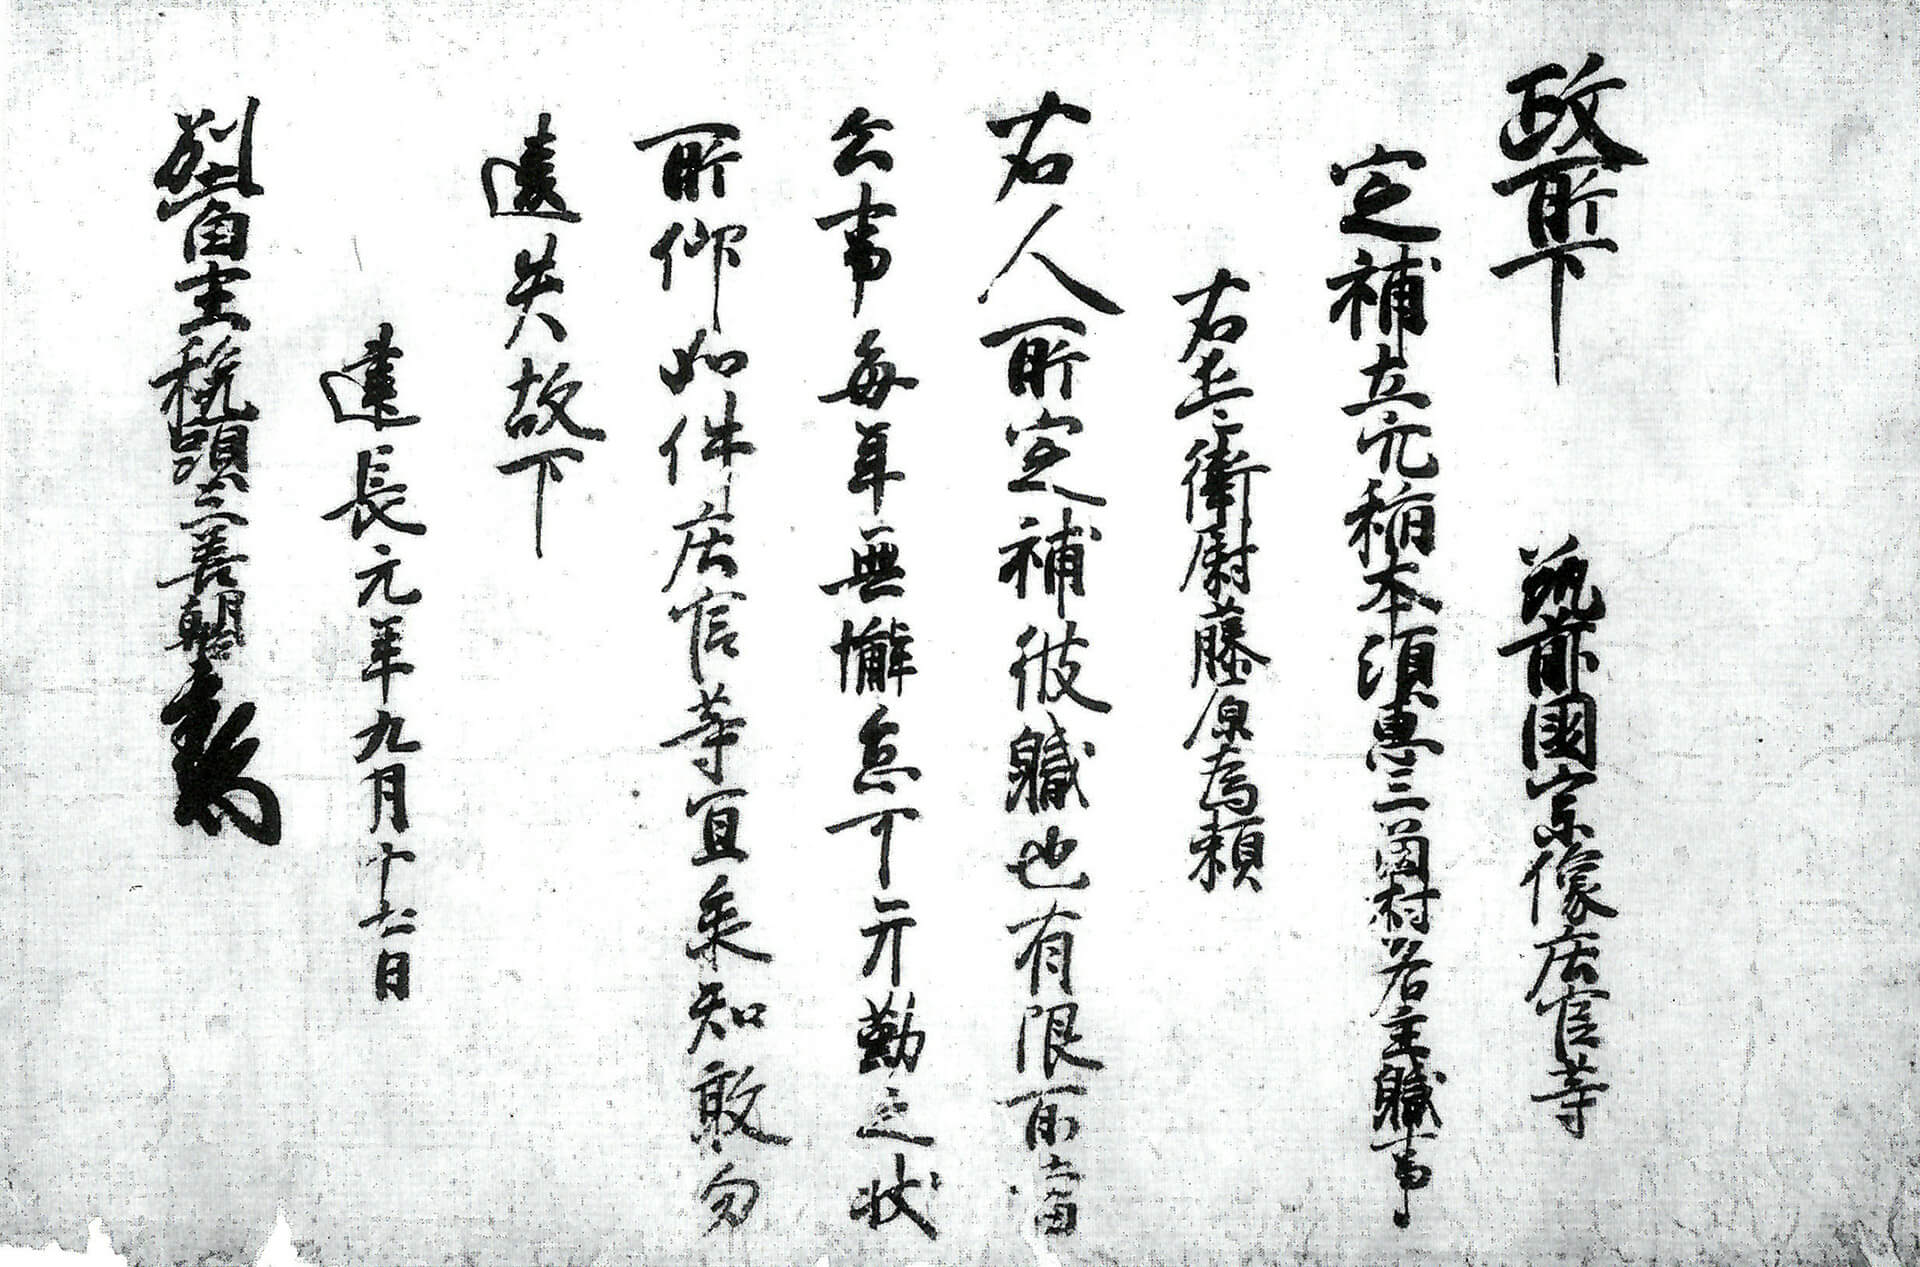 政所下 筑前國宗像庄官等
定補立穴稲本須恵三箇村名主職事
右兵衛尉藤原為頼
右人所定補彼職也有限所當
公事毎年無懈怠可弁勤之状
所仰如件庄官等宜承知敢勿
遺失故下
建長元年九月十六日
別當主税頭三善朝臣